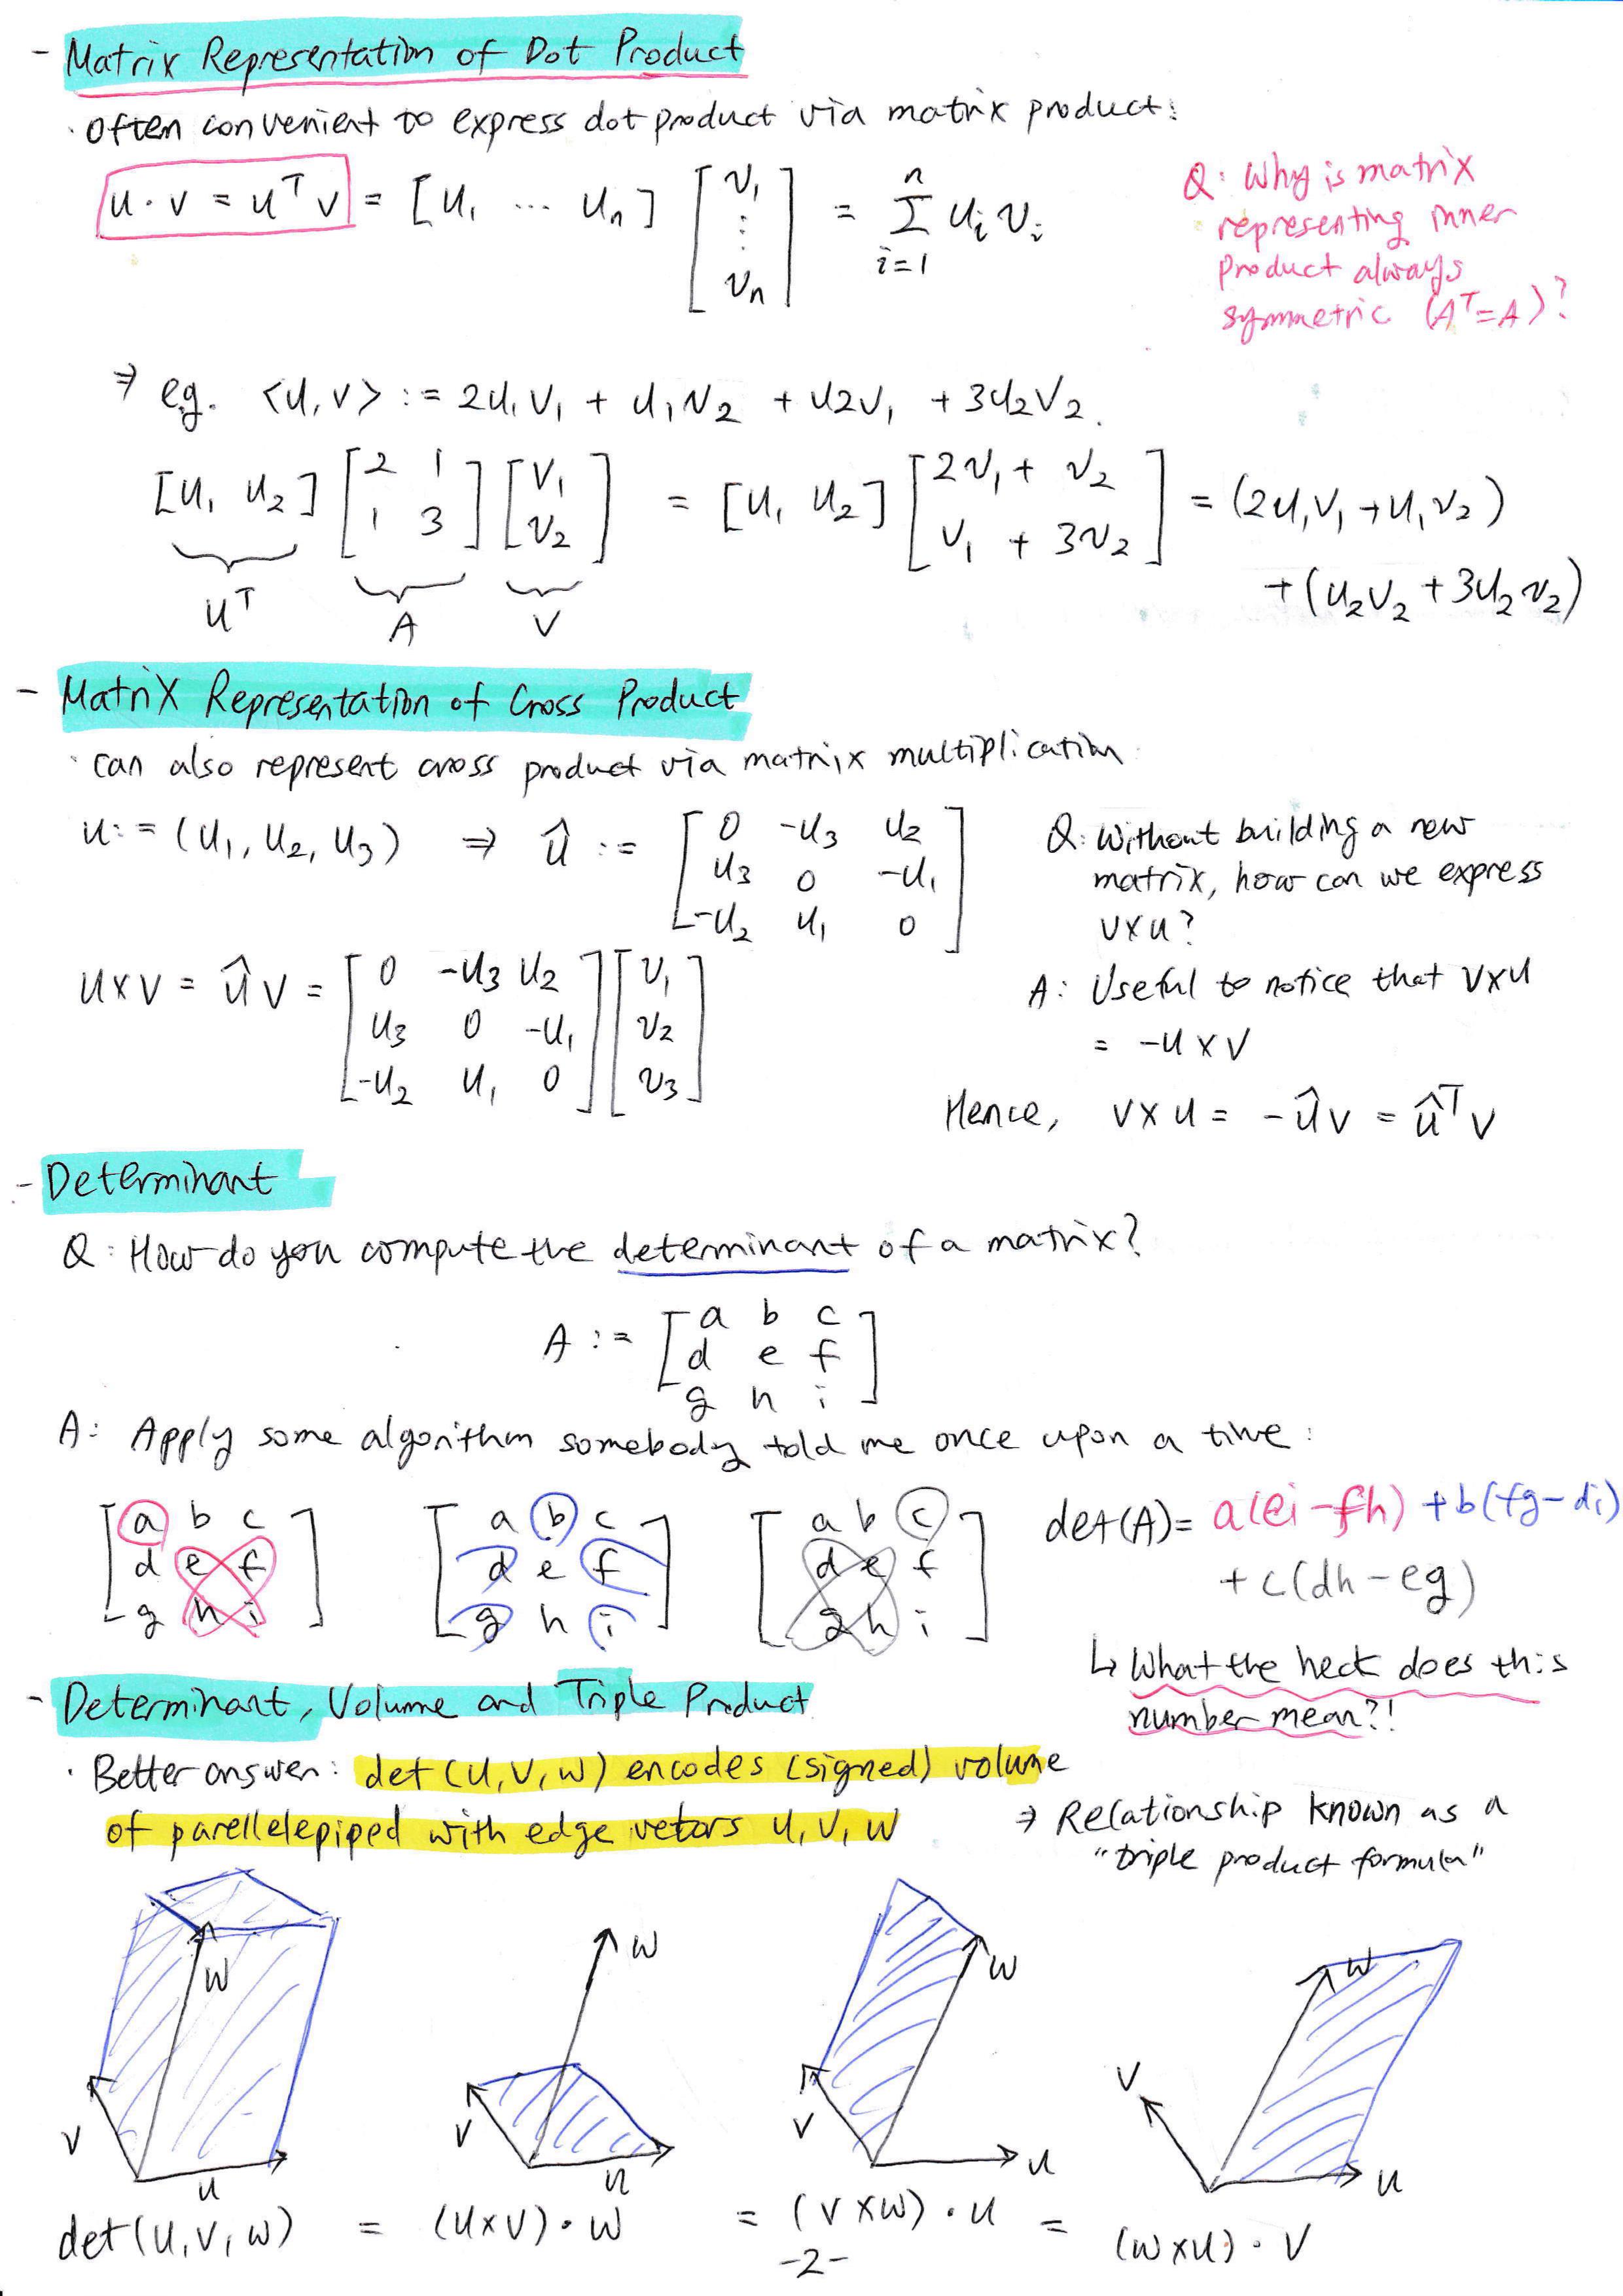 - Matrix Representation of Dot Product
· Often convenient to express dot product via matrix product:
u · v = uᵀv = [u₁ ... uₙ] [v₁ ⋮ vₙ] = Σᵢ₌₁ⁿ uᵢvᵢ
Q: Why is matrix
representing inner
product always
symmetric (Aᵀ=A)?
⇒ e.g. <u,v> := 2u₁v₁ + u₁v₂ + u2v₁ + 3u₂v₂.
[u₁ u₂] [2 1; 1 3] [v₁; v₂] = [u₁ u₂] [2v₁ + v₂; v₁ + 3v₂] = (2u₁v₁ + u₁v₂)
+ (u₂v₂ + 3u₂v₂)
uᵀ A v
- Matrix Representation of Cross Product
· can also represent cross product via matrix multiplication
u := (u₁, u₂, u₃) ⇒ û := [0 -u₃ u₂; u₃ 0 -u₁; -u₂ u₁ 0]
u×v = ûv = [0 -u₃ u₂; u₃ 0 -u₁; -u₂ u₁ 0] [v₁; v₂; v₃]
Q: Without building a new
matrix, how can we express
v×u?
A: Useful to notice that v×u
= -u×v
Hence, v×u = -ûv = ûᵀv
- Determinant
Q: How do you compute the determinant of a matrix?
A := [a b c; d e f; g h i]
A: Apply some algorithm somebody told me once upon a time:
[a b c; d e f; g h i] [a b c; d e f; g h i] [a b c; d e f; g h i]
det(A) = a(ei-fh) + b(fg-di)
+ c(dh-eg)
↳ What the heck does this
number mean?!
- Determinant, Volume and Triple Product
· Better answer: det(u,v,w) encodes (signed) volume
of parellelepiped with edge vetors u, v, w
⇒ Relationship known as a
"triple product formula"
w v u
w v u
w v u
w v u
det(u,v,w) = (u×v)·w = (v×w)·u = (w×u)·v
-2-